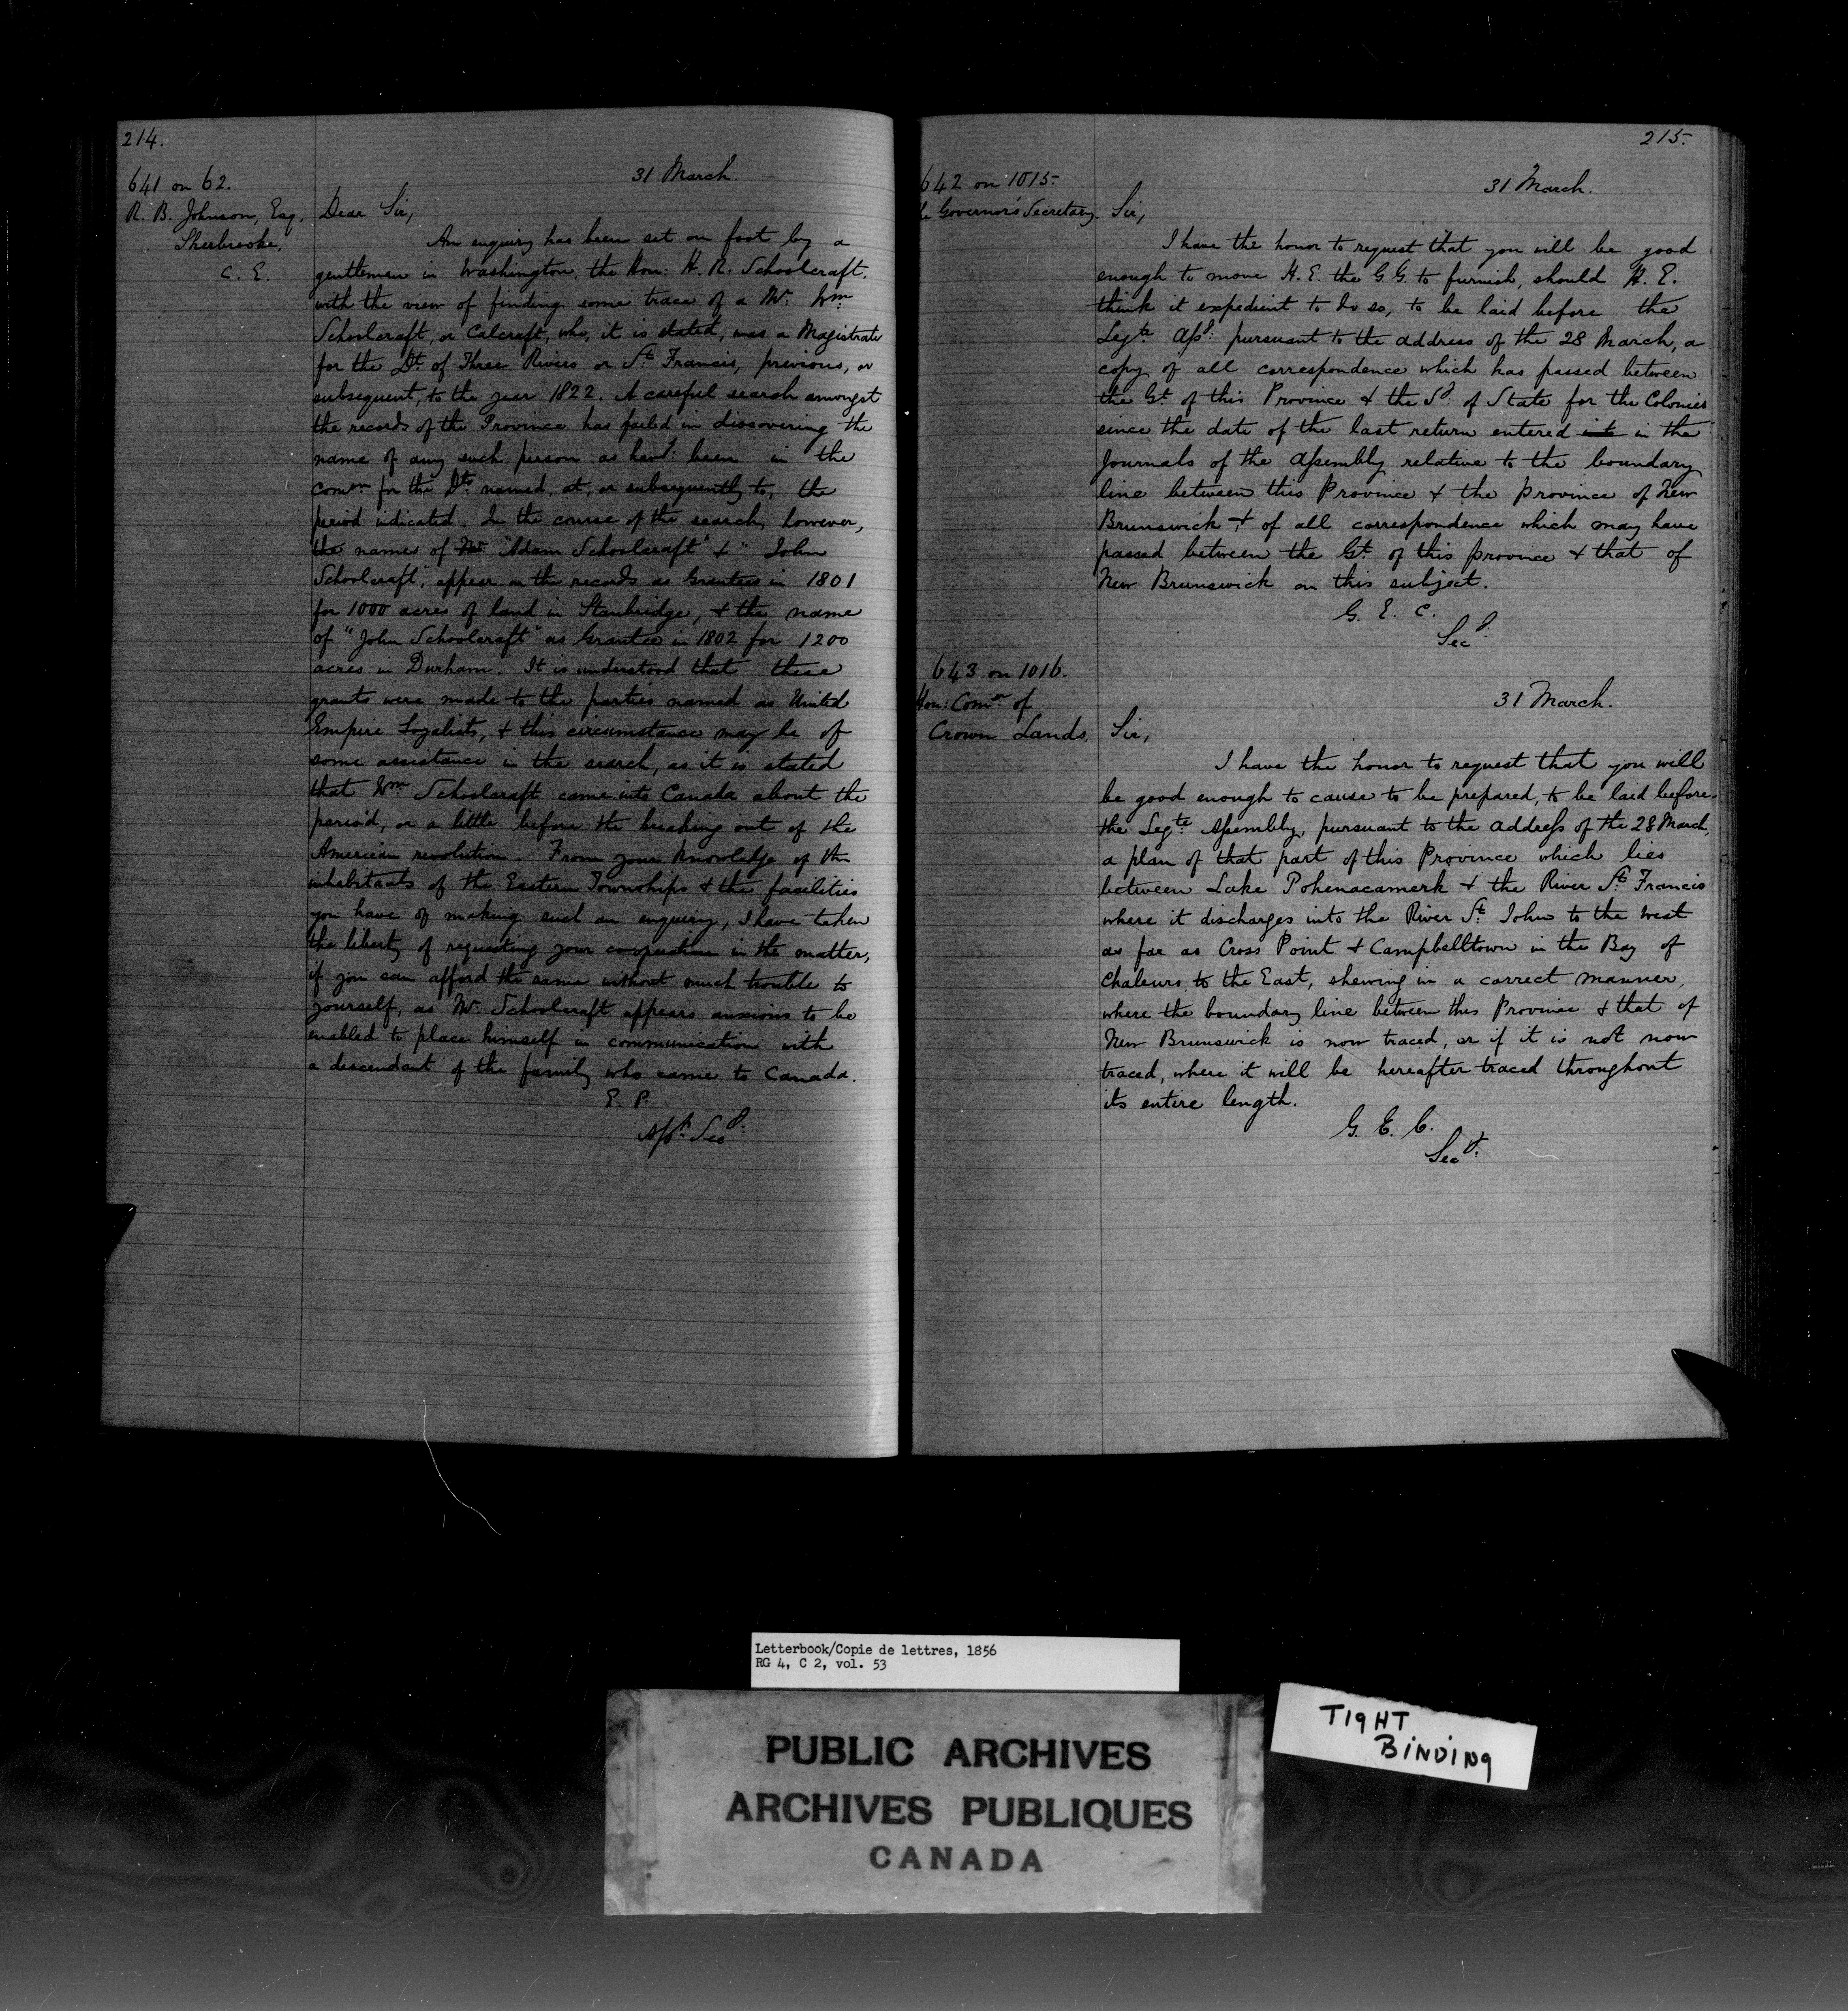 214.
31 March.
641 on 62.
R. B. Johnson, Esq.
Sherbrooke,
C. E.
Dear Sir,
An enquiry has been set on foot by a
gentleman in Washington, the Hon: H. R. Schoolcraft,
with the view of finding some trace of a Mr. Wm
Schoolcraft, or Calcraft, who, it is stated, was a Magistrate
for the Dt. of Three Rivers or St. Francis, previous, or
subsequent, to the year 1822. A careful search amongst
the records of the Province has failed in discovering the
name of any such person as havg: been in the
Comn. for the Dts. named, at, or subsequently to, the
period indicated. In the course of the search, however,
the names of Mr. "Adam Schoolcraft" & "John
Schoolcraft", appear on the records as Grantees in 1801
for 1000 acres of land in Stanbridge, & the name
of "John Schoolcraft" as Grantee in 1802 for 1200
acres in Durham. It is understood that these
grants were made to the parties named as United
Empire Loyalists, & this circumstance may be of
some assistance in the search, as it is stated
that Wm. Schoolcraft came into Canada about the
period, or a little before the breaking out of the
American revolution. From your knowledge of the
inhabitants of the Eastern Townships & the facilities
you have of making such an enquiry, I have taken
the liberty of requesting your cooperation in the matter,
if you can afford the same without much trouble to
yourself, as Mr. Schoolcraft appears anxious to be
enabled to place himself in communication with
a descendant of the family who came to Canada.
E. P.
Asst. Secy.
215.
31 March.
642 on 1015.
Governor's Secretary.
Sir,
I have the honor to request that you will be good
enough to move H. E. the G. G. to furnish, should H. E.
think it expedient to do so, to be laid before the
Legte. Assy. pursuant to the address of the 28 March, a
copy of all correspondence which has passed between
the Gt. of this Province & the Sy. of State for the Colonies
since the date of the last return entered into in the
Journals of the Assembly relative to the boundary
line between this Province & the Province of New
Brunswick & of all correspondence which may have
passed between the Gt. of this province & that of
New Brunswick on this subject.
G. E. C.
Secy.
643 on 1016.
Hon: Comr. of
Crown Lands.
31 March.
Sir,
I have the honor to request that you will
be good enough to cause to be prepared, to be laid before
the Legte. Assembly, pursuant to the address of the 28 March,
a plan of that part of this Province which lies
between Lake Pohenacamerk & the River St. Francis
where it discharges into the River St. John to the West
as far as Cross Point & Campbelltown in the Bay of
Chaleurs to the East, shewing in a correct manner,
where the boundary line between this Province & that of
New Brunswick is now traced, or if it is not now
traced, where it will be hereafter traced throughout
its entire length.
G. E. C.
Secy.
Letterbook/Copie de lettres, 1856
RG 4, C 2, vol. 53
PUBLIC ARCHIVES
ARCHIVES PUBLIQUES
CANADA
TIGHT
BINDING